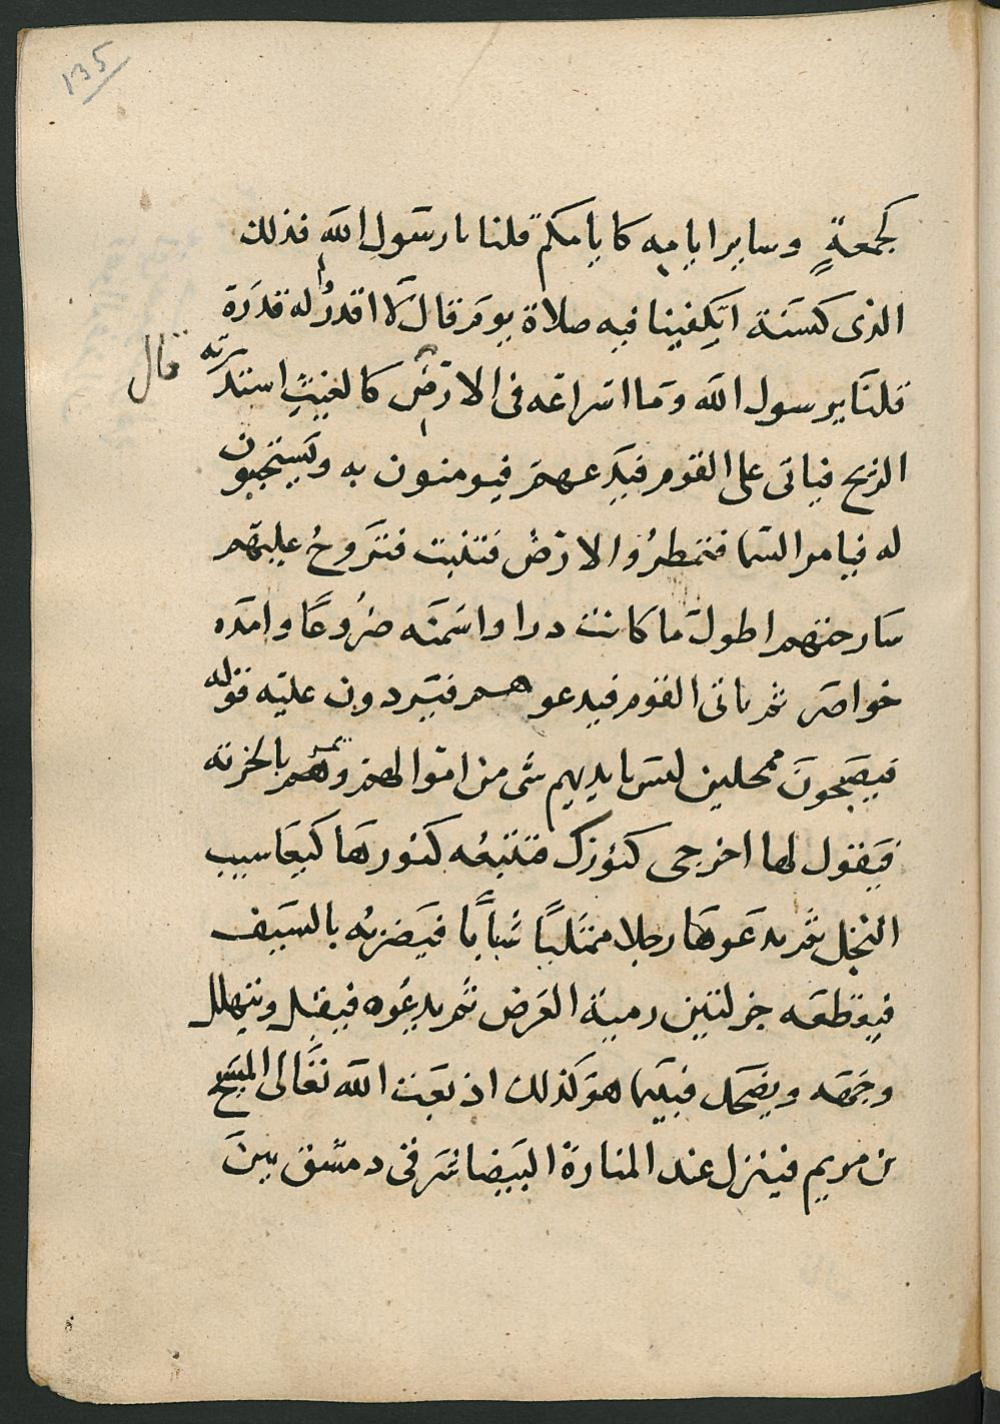 135
كجمعةٍ وساير ايامه كايامكم قلنا يا رسول الله فذلك
الذى كسنة ايكفينا فيه صلاة يوم قال لا اقدروا له قدره
قلنا يرسول الله وما اسراعه فى الارض كالغيث استدبرته
قال
الريح فياتى على القوم فيدعهم فيومنون به ويستجيبون
له فيامر السما فتمطرُ والارض فتنبت فتروحُ عليهم
سارحتهم اطول ما كانت درا واسمنه ضروعًا وامده
خواصر ثم ياتى القوم فيدعوهم فيردون عليه قوله
فيصبحون ممحلين ليس بايديهم شى من اموالهم ويمر بالخربه
فيقول لها اخرجى كنوزك فتتبعه كنوزها كيعاسيب
النحل ثم يدعو رجلا ممتليًا شبابًا فيضربه بالسيف
فيقطعه جزلتين رمية الغرض ثم يدعوه فيقبل ويتهلل
وجهه ويضحك فبينما هو كذلك اذ بعث الله تعالى المسيح
بن مريم فينزل عند المنارة البيضا شرقى دمشق بين